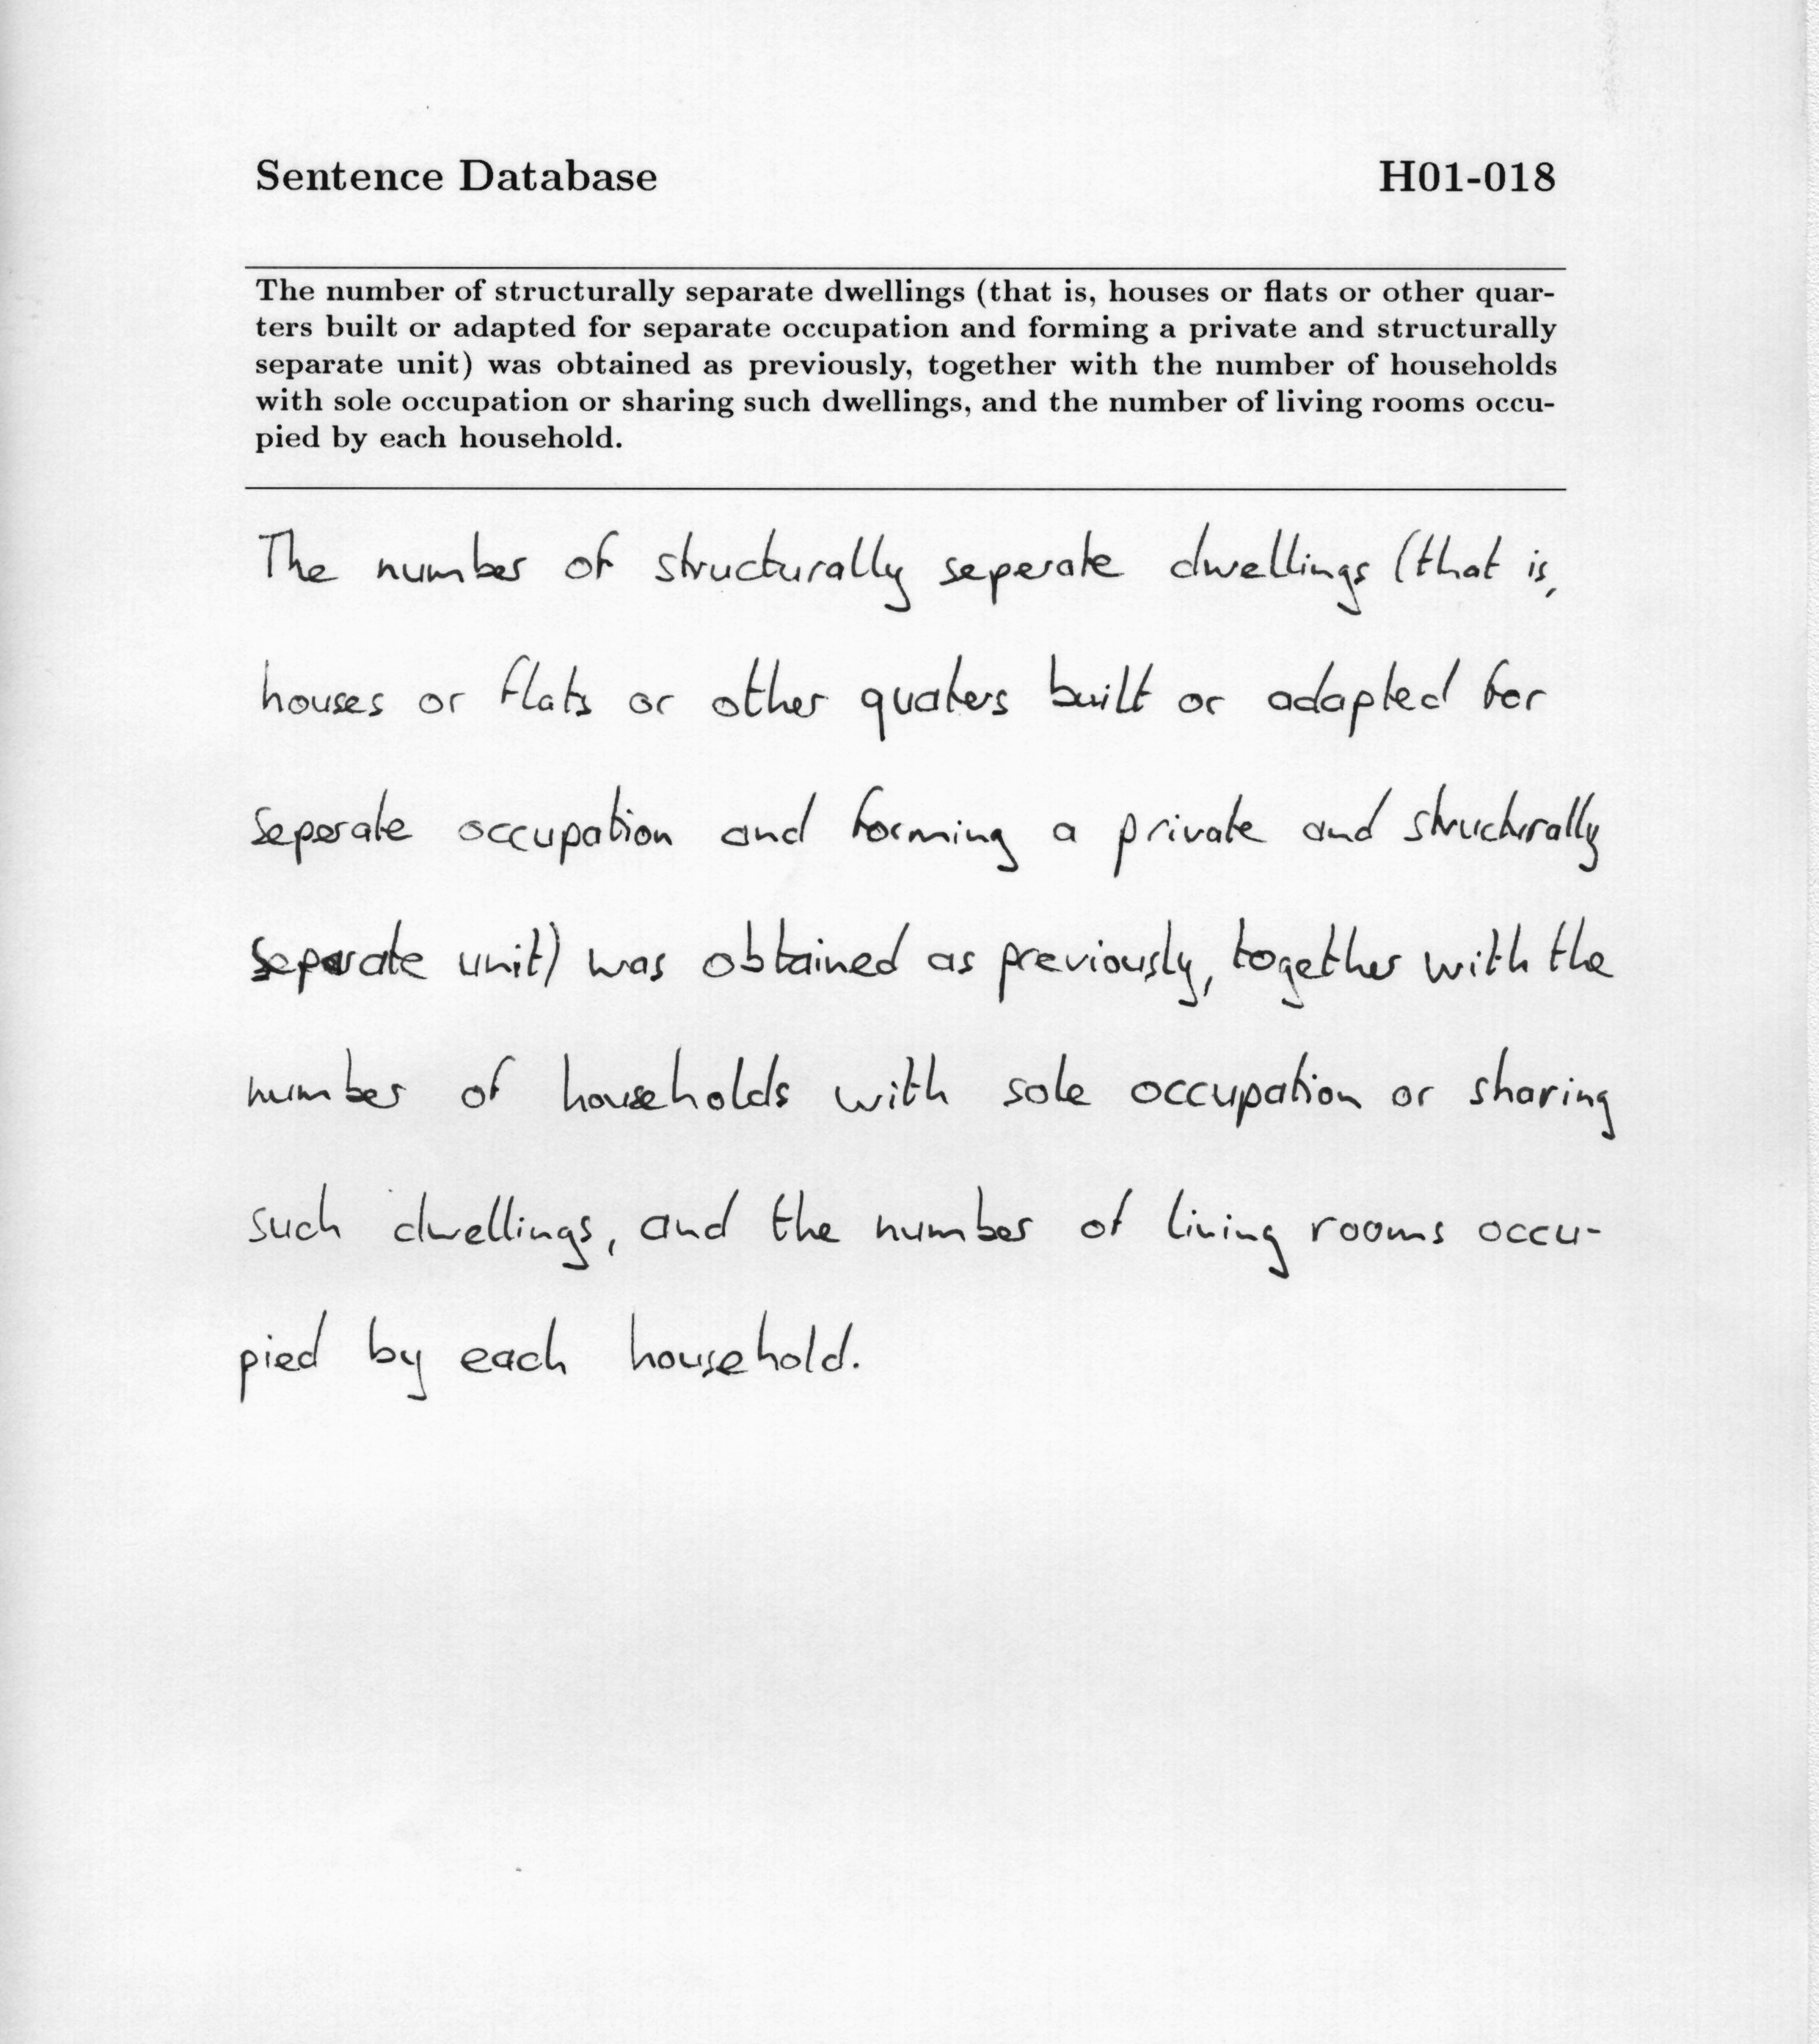 Sentence Database H01-018
The number of structurally separate dwellings (that is, houses or flats or other quar-
ters built or adapted for separate occupation and forming a private and structurally
separate unit) was obtained as previously, together with the number of households
with sole occupation or sharing such dwellings, and the number of living rooms occu-
pied by each household.
The number of structurally seperate dwellings (that is,
houses or flats or other quaters built or adapted for
seperate occupation and forming a private and structurally
separate unit) was obtained as previously, together with the
number of households with sole occupation or sharing
such dwellings, and the number of living rooms occu-
pied by each household.